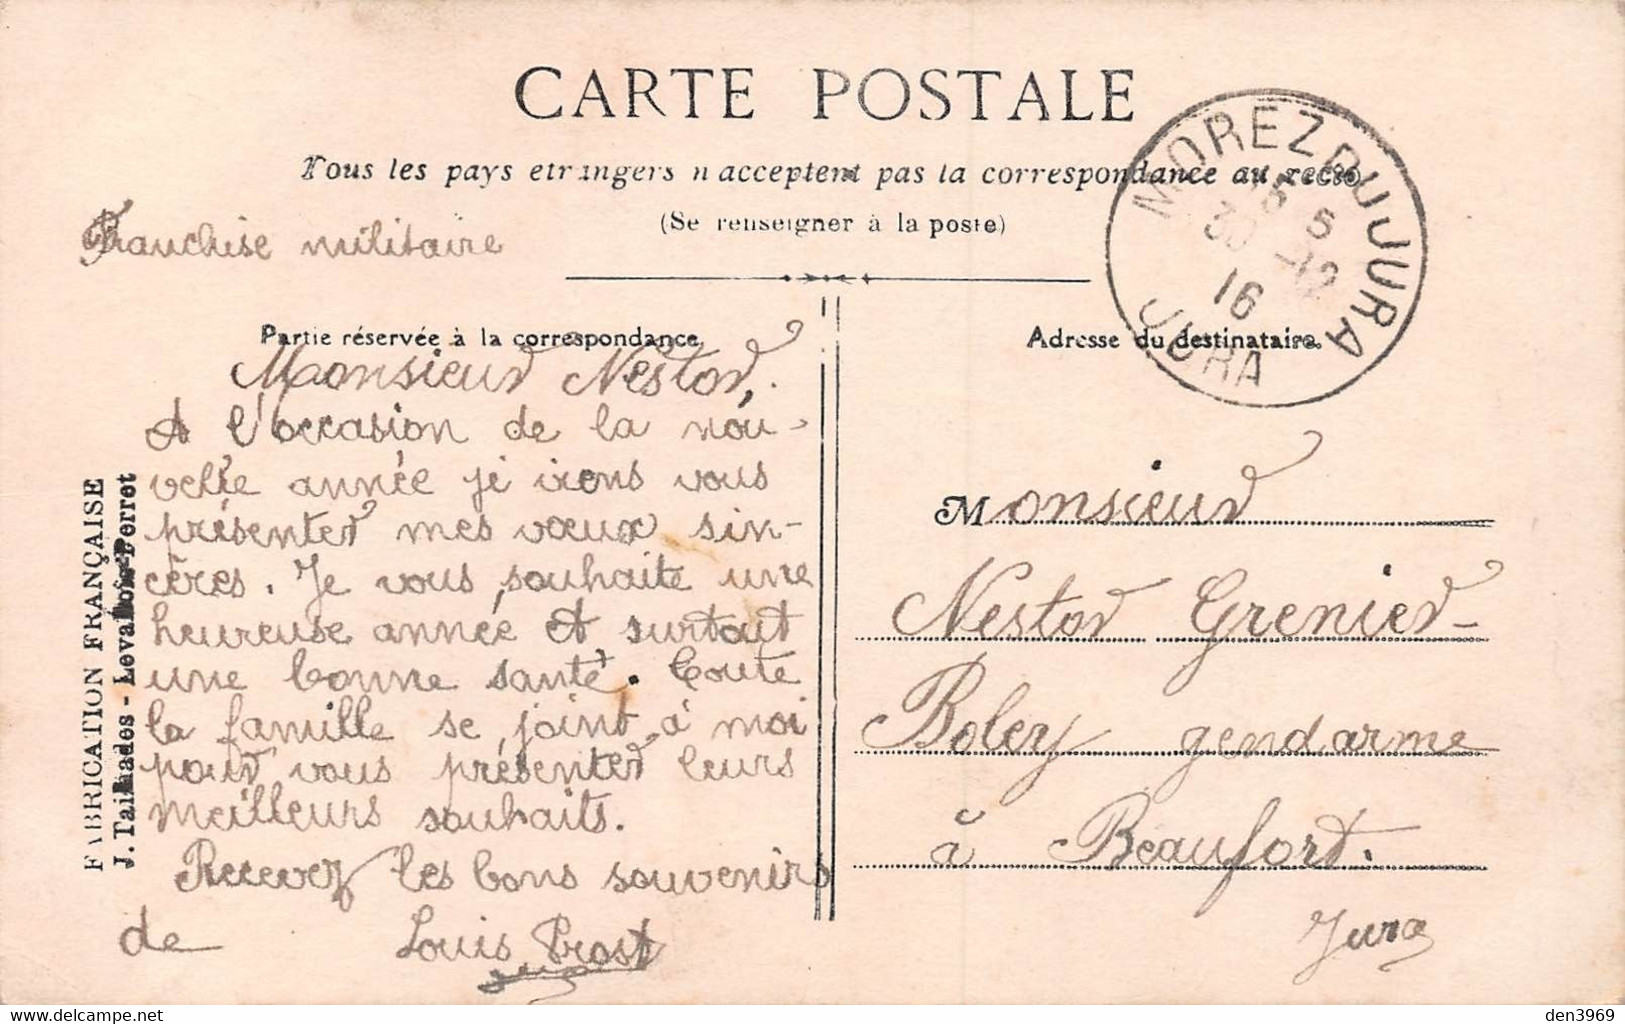 CARTE POSTALE
Tous les pays etrangers n'acceptent pas la correspondance au recto
(Se renseigner à la poste)
Franchise militaire
MOREZ DU JURA
JURA
30 -12
16
Partie réservée à la correspondance
Adresse du destinataire
Monsieur Nestor,
A l'occasion de la nou-
velle année je irons vous
présenter mes vœux sin-
cères. Je vous souhaite une
heureuse année et surtout
une bonne santé. Toute
la famille se joint à moi
pour vous présenter leurs
meilleurs souhaits.
Recevez les bons souvenirs
de Louis Prost
Monsieur
Nestor Grenier-
Boley gendarme
à Beaufort.
Jura
FABRICATION FRANÇAISE
J. Taillades - Levallois-Perret
den3969